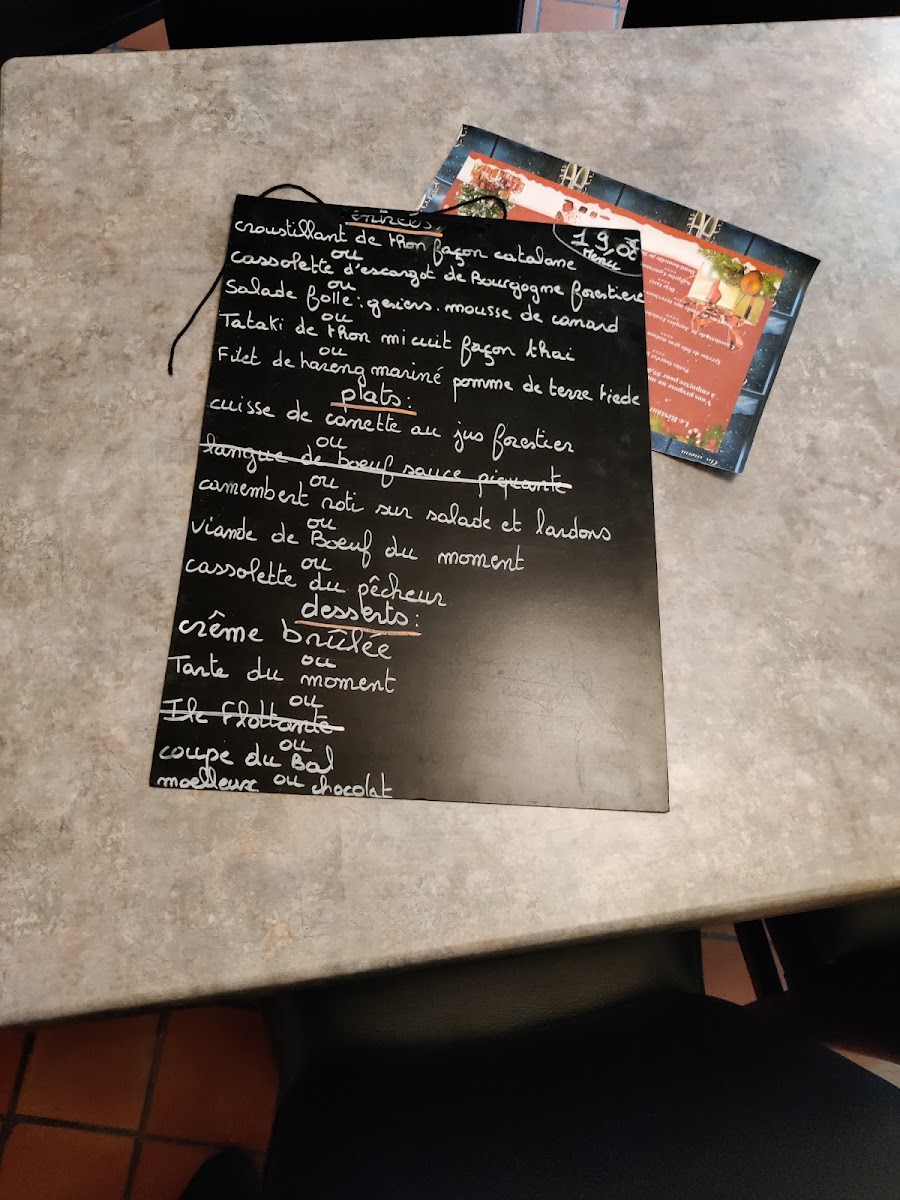 entrées:
19,0€
Menu
croustillant de thon façon catalane
ou
cassolette d'escargot de Bourgogne forestiere
ou
Salade folle: gesiers. mousse de canard
ou
Tataki de thon mi cuit façon thai
ou
Filet de hareng mariné pomme de terre tiede
plats:
cuisse de canette au jus forestier
ou
langue de boeuf sauce piquante
ou
camembert roti sur salade et lardons
ou
viande de Boeuf du moment
ou
cassolette du pêcheur
desserts:
crême brûlée
ou
Tarte du moment
ou
Ile Flottante
ou
coupe du Bal
ou
moelleux chocolat
Le Restau
Vous propose un m
à emporter pour
Petits fourrés
Terrine de foie gras maison